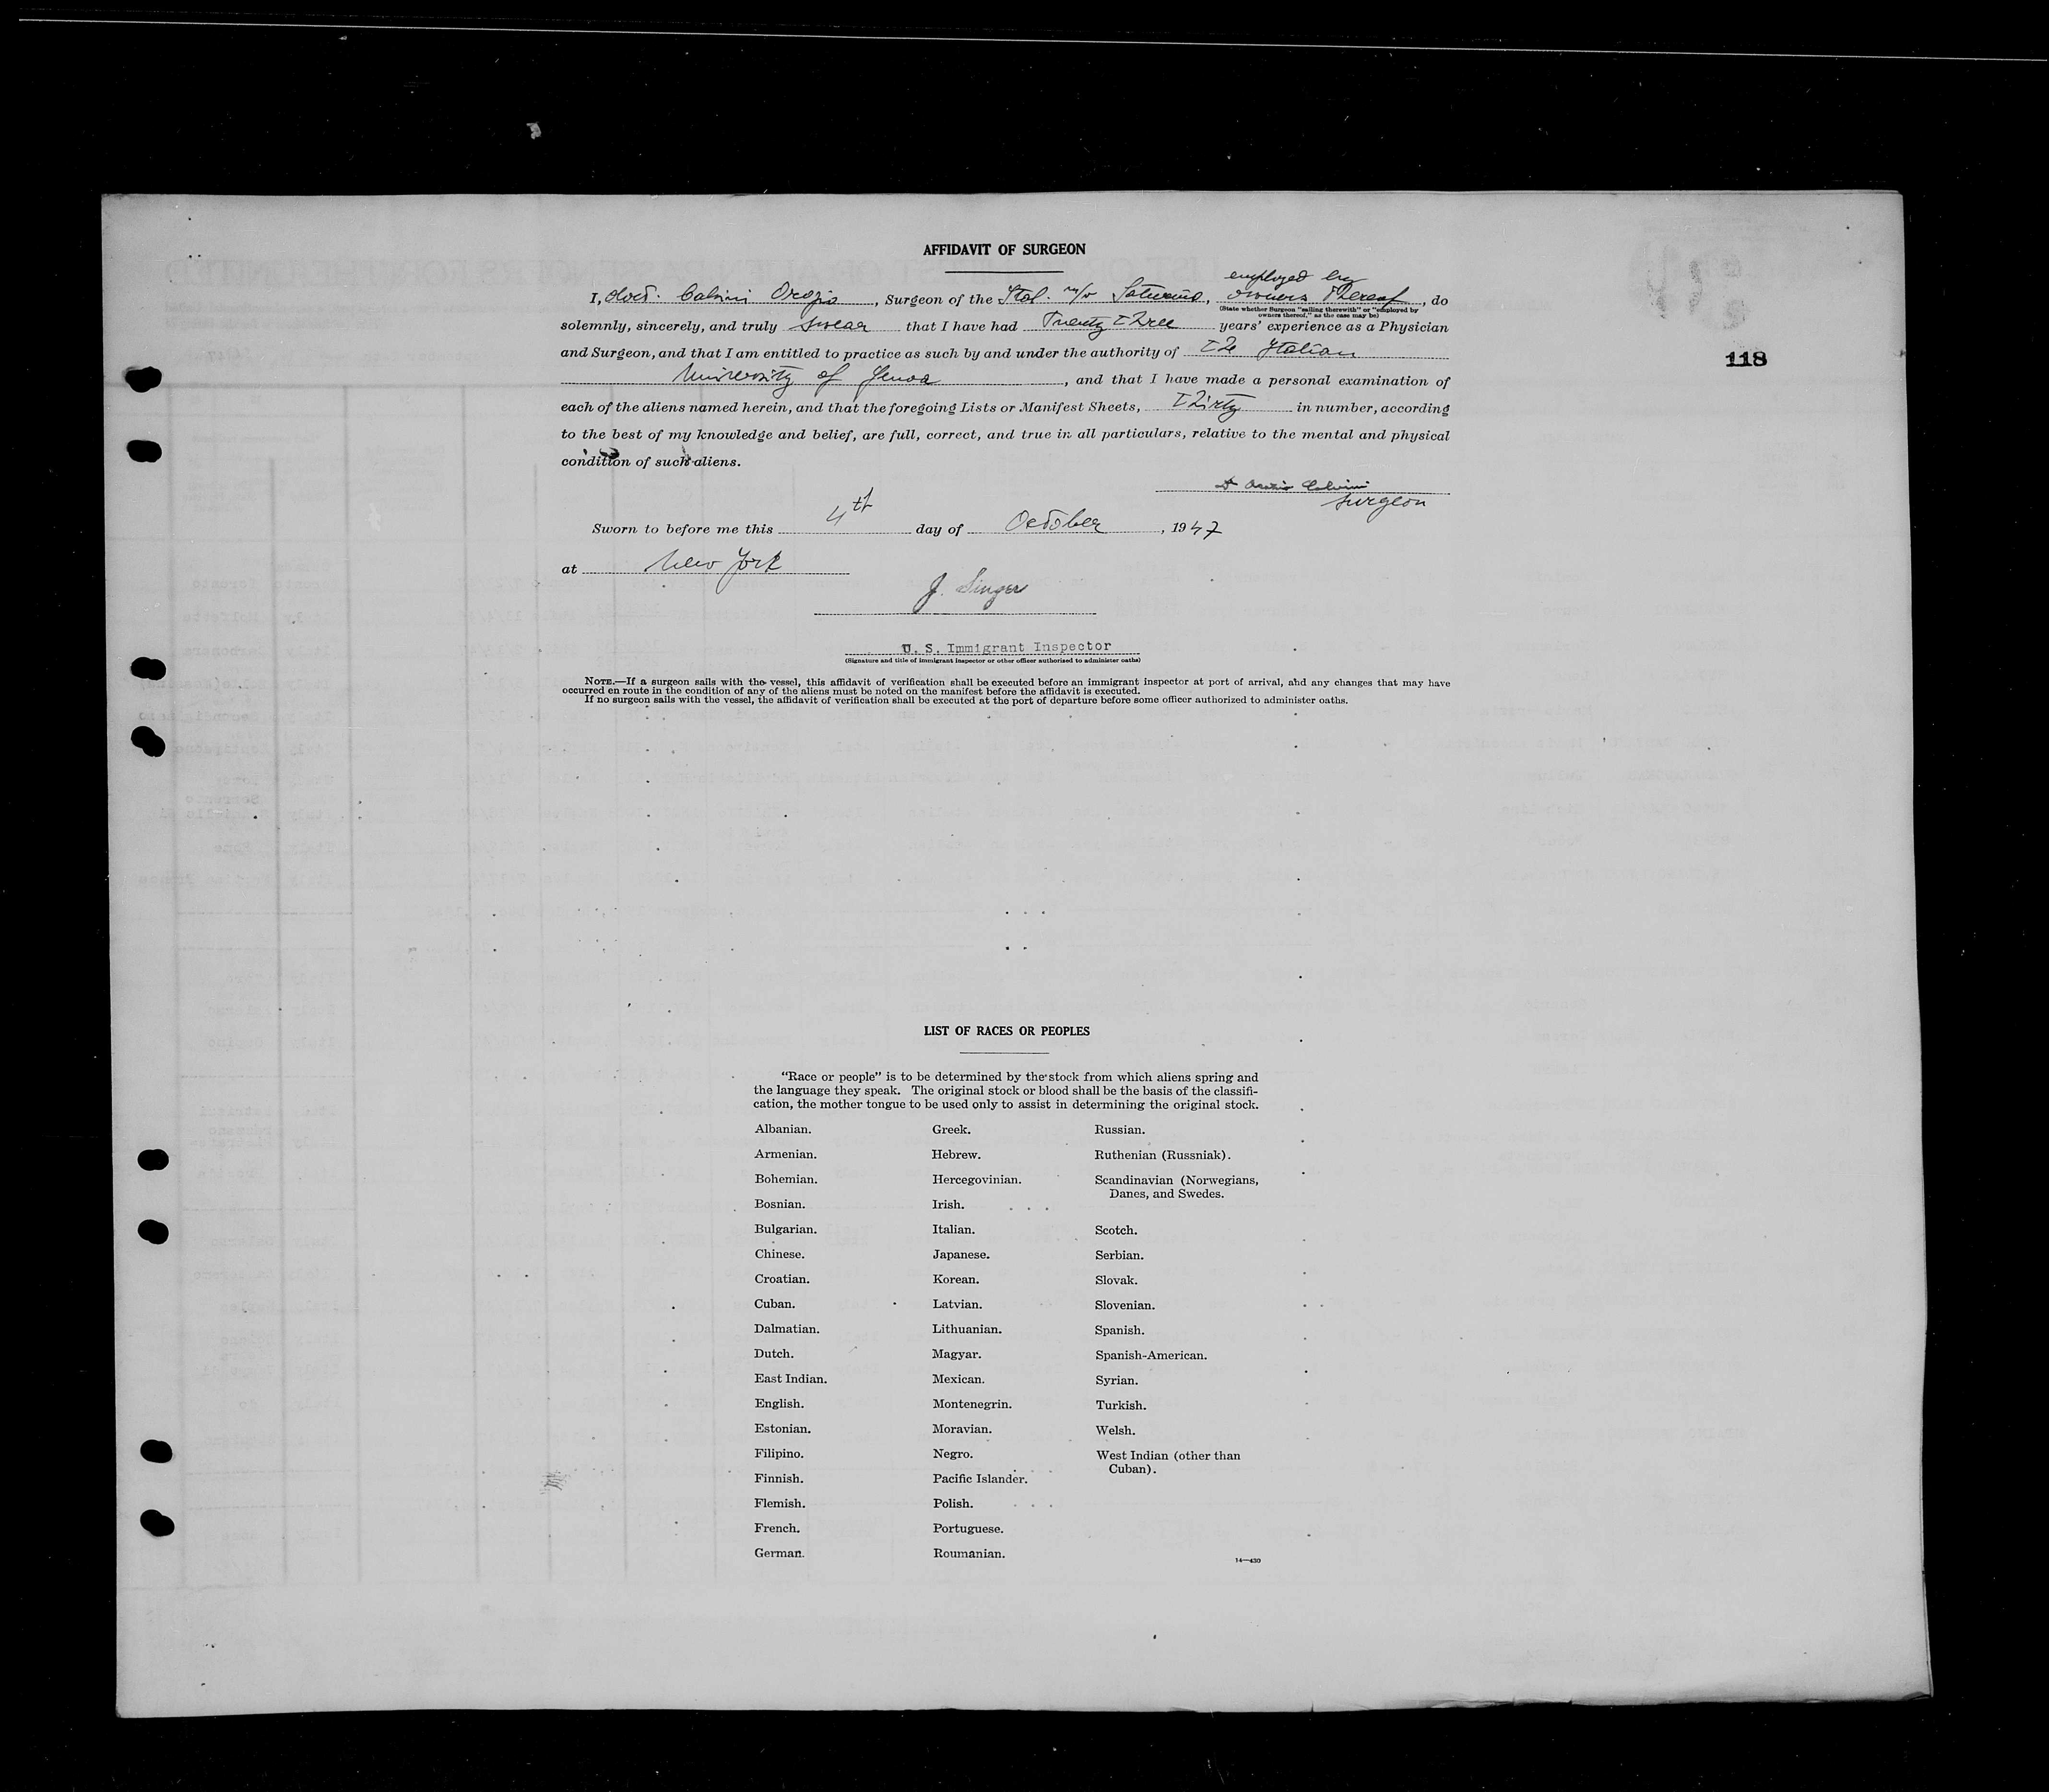 AFFIDAVIT OF SURGEON
employed by
I, doct. Calvini Orazio, Surgeon of the Ital. m/v Saturnia, owners thereof, do
(State whether Surgeon "sailing therewith" or "employed by
owners thereof," as the case may be)
solemnly, sincerely, and truly swear that I have had Twenty three years' experience as a Physician
and Surgeon, and that I am entitled to practice as such by and under the authority of the Italian
118
University of Genoa, and that I have made a personal examination of
each of the aliens named herein, and that the foregoing Lists or Manifest Sheets, thirty in number, according
to the best of my knowledge and belief, are full, correct, and true in all particulars, relative to the mental and physical
condition of such aliens.
Dr Orazio Calvini
surgeon
Sworn to before me this 4th day of October, 1947
at New York
J. Singer
U. S. Immigrant Inspector
(Signature and title of immigrant inspector or other officer authorized to administer oaths)
NOTE.—If a surgeon sails with the vessel, this affidavit of verification shall be executed before an immigrant inspector at port of arrival, and any changes that may have
occurred en route in the condition of any of the aliens must be noted on the manifest before the affidavit is executed.
If no surgeon sails with the vessel, the affidavit of verification shall be executed at the port of departure before some officer authorized to administer oaths.
LIST OF RACES OR PEOPLES
"Race or people" is to be determined by the stock from which aliens spring and
the language they speak. The original stock or blood shall be the basis of the classifi-
cation, the mother tongue to be used only to assist in determining the original stock.
Albanian.
Armenian.
Bohemian.
Bosnian.
Bulgarian.
Chinese.
Croatian.
Cuban.
Dalmatian.
Dutch.
East Indian.
English.
Estonian.
Filipino.
Finnish.
Flemish.
French.
German.
Greek.
Hebrew.
Hercegovinian.
Irish.
Italian.
Japanese.
Korean.
Latvian.
Lithuanian.
Magyar.
Mexican.
Montenegrin.
Moravian.
Negro.
Pacific Islander.
Polish.
Portuguese.
Roumanian.
Russian.
Ruthenian (Russniak).
Scandinavian (Norwegians,
Danes, and Swedes.
Scotch.
Serbian.
Slovak.
Slovenian.
Spanish.
Spanish-American.
Syrian.
Turkish.
Welsh.
West Indian (other than
Cuban).
14—430